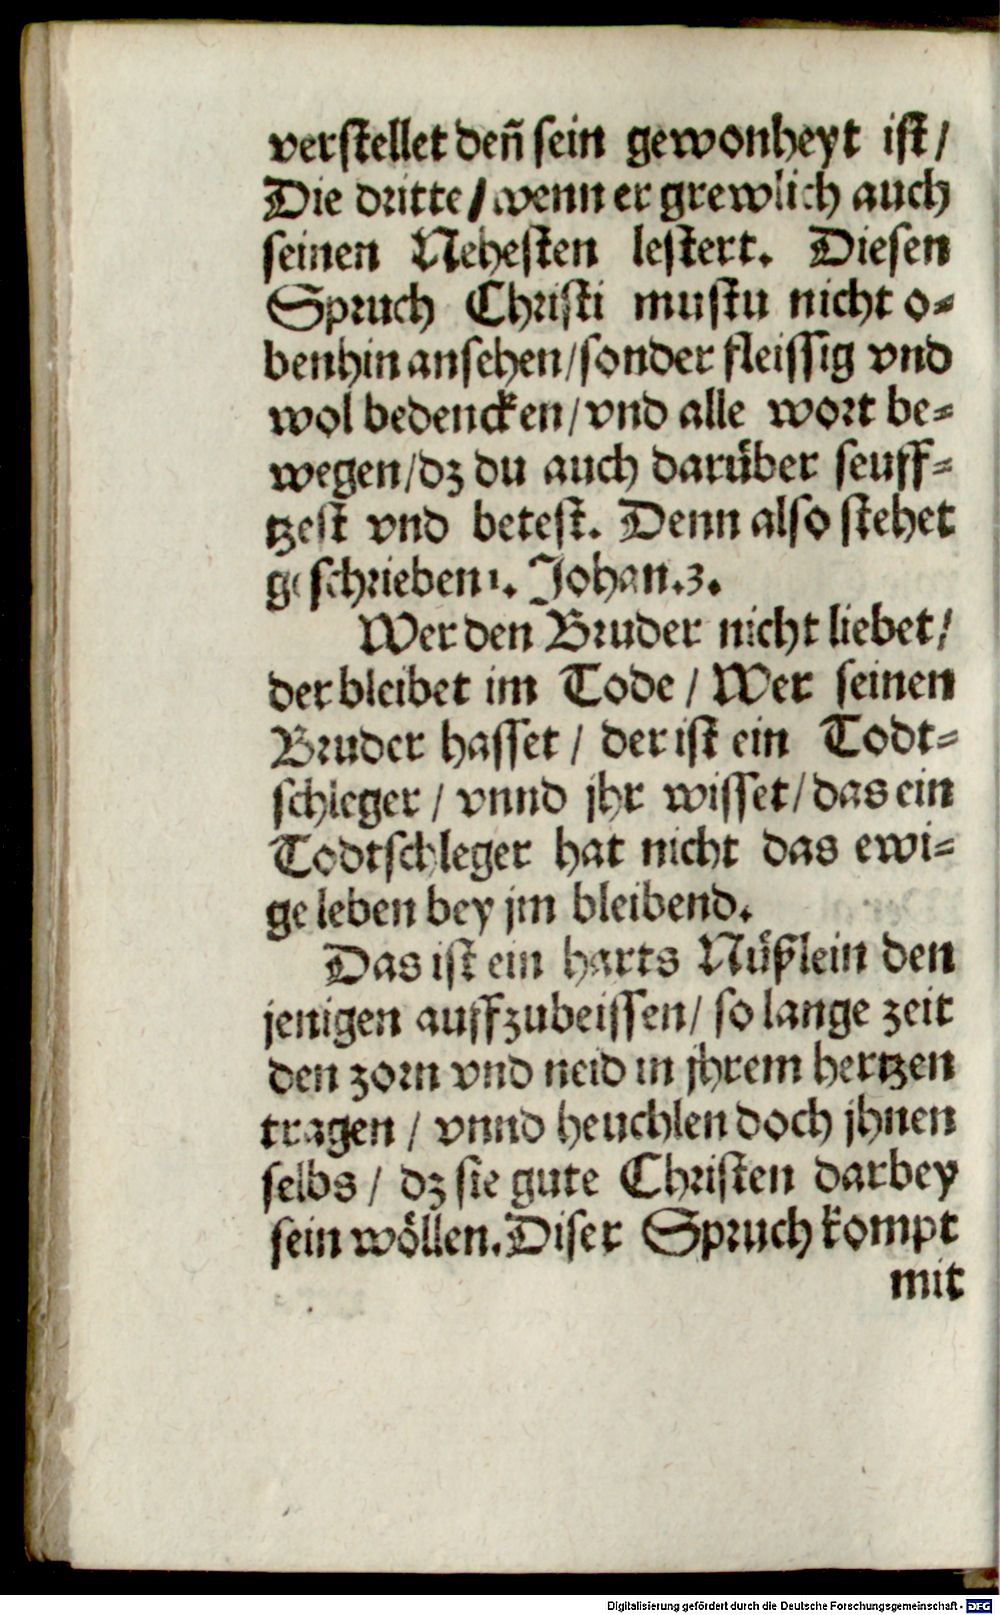 verstellet deñ sein gewonheyt ist /
Die dritte / wenn er grewlich auch
seinen Nehesten lestert. Diesen
Spruch Christi mustu nicht o⸗
benhin ansehen / sonder fleissig vnd
wol bedencken / vnd alle wort be⸗
wegen / dz du auch darüber seuff⸗
tzest vnd betest. Denn also stehet
geschrieben 1. Johan. 3.
Wer den Bruder nicht liebet /
der bleibet im Tode / Wer seinen
Bruder hasset / der ist ein Todt⸗
schleger / vnnd jhr wisset / das ein
Todtschleger hat nicht das ewi⸗
ge leben bey jm bleibend.
Das ist ein harts Nüßlein den
jenigen auffzubeissen / so lange zeit
den zorn vnd neid in jhrem hertzen
tragen / vnnd heuchlen doch jhnen
selbs / dz sie gute Christen darbey
sein wöllen. Diser Spruch kompt
mit
Digitalisierung gefördert durch die Deutsche Forschungsgemeinschaft - DFG